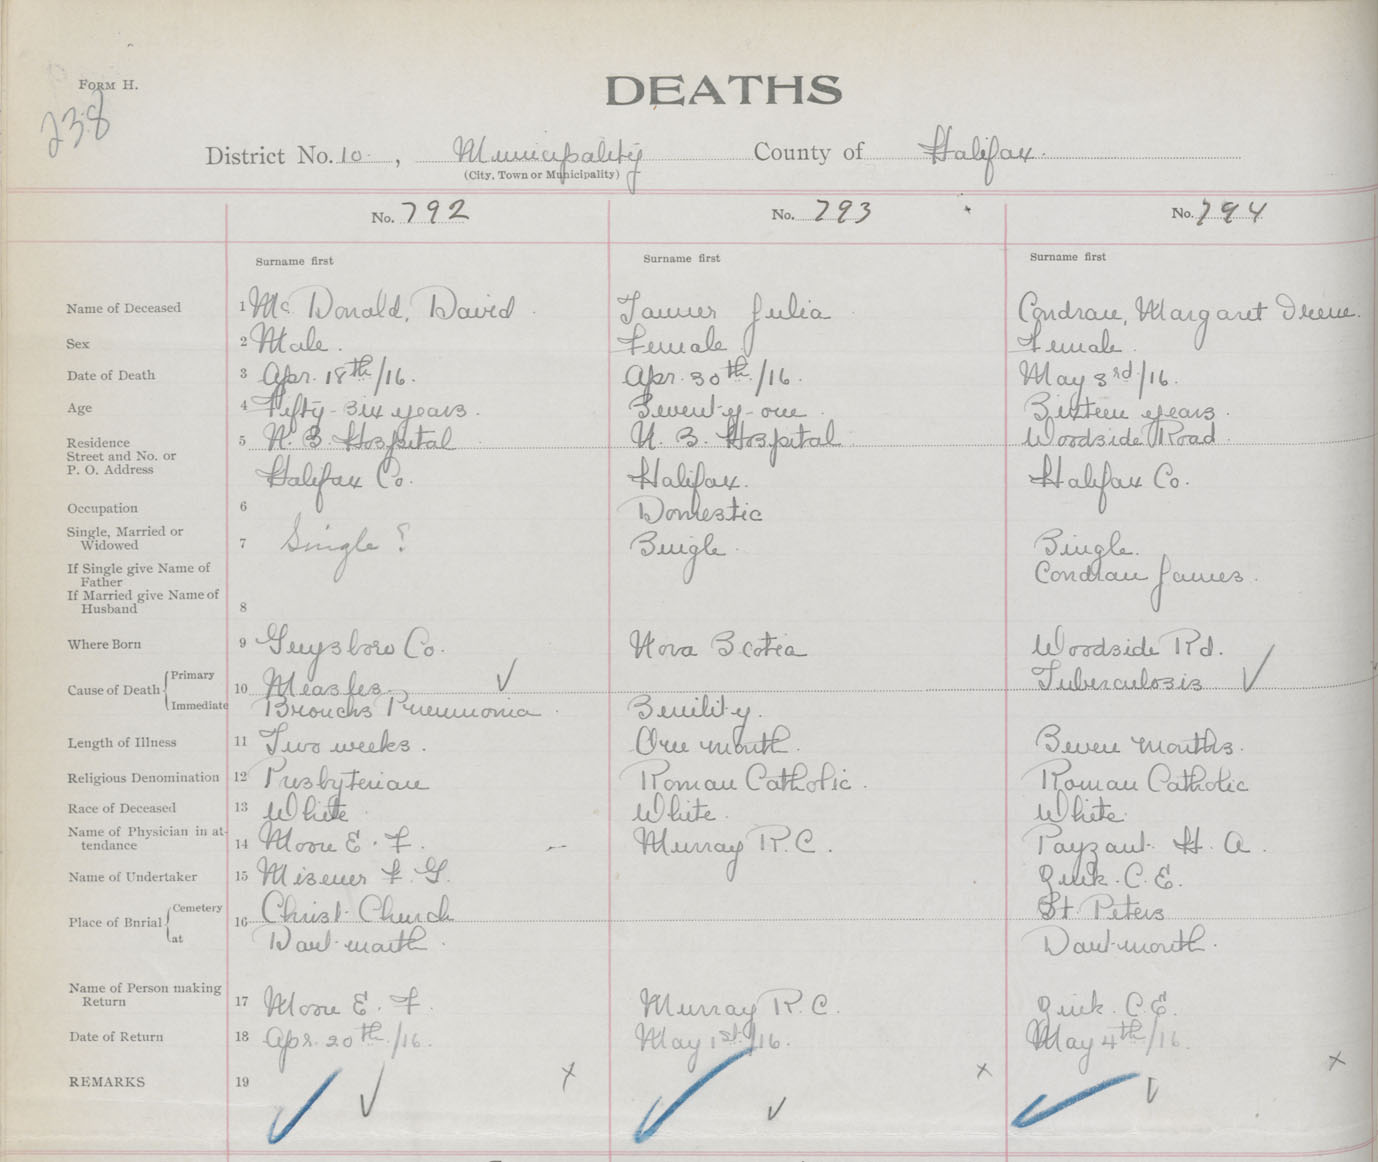 FORM H.
DEATHS
238
District No. 10 , Municipality County of Halifax.
(City, Town or Municipality)
No. 792 No. 793 No. 794
Surname first Surname first Surname first
Name of Deceased 1 Mc Donald, David Julia Condrau, Margaret Irene.
Sex 2 Male. Female Female.
Date of Death 3 Apr. 18th/16. Apr. 30th/16. May 3rd/16.
Age 4 Fifty-six years. Seventy-one Sixteen years.
Residence 5 N. S. Hospital N. S. Hospital Woodside Road
Street and No. or
P. O. Address Halifax Co. Halifax. Halifax Co.
Occupation 6 Domestic
Single, Married or
Widowed 7 Single? Single. Single.
If Single give Name of
Father Condrau James.
If Married give Name of
Husband 8
Where Born 9 Guysboro Co. Nova Scotia Woodside Rd.
Cause of Death Primary 10 Measles Tuberculosis
Immediate Broncho Pneumonia Senility.
Length of Illness 11 Two weeks. One month. Seven months.
Religious Denomination 12 Presbyterian Roman Catholic. Roman Catholic
Race of Deceased 13 White White. White.
Name of Physician in at-
tendance 14 Moore E. F. Murray R.C. Payzant. H. A.
Name of Undertaker 15 Misener F. G. Zink. C. E.
Place of Bnrial Cemetery 16 Christ Church St. Peters
at Dartmouth. Dartmouth.
Name of Person making
Return 17 Moore E. F. Murray R. C. Zink. C. E.
Date of Return 18 Apr. 20th/16. May 1st/16. May 4th/16.
REMARKS 19